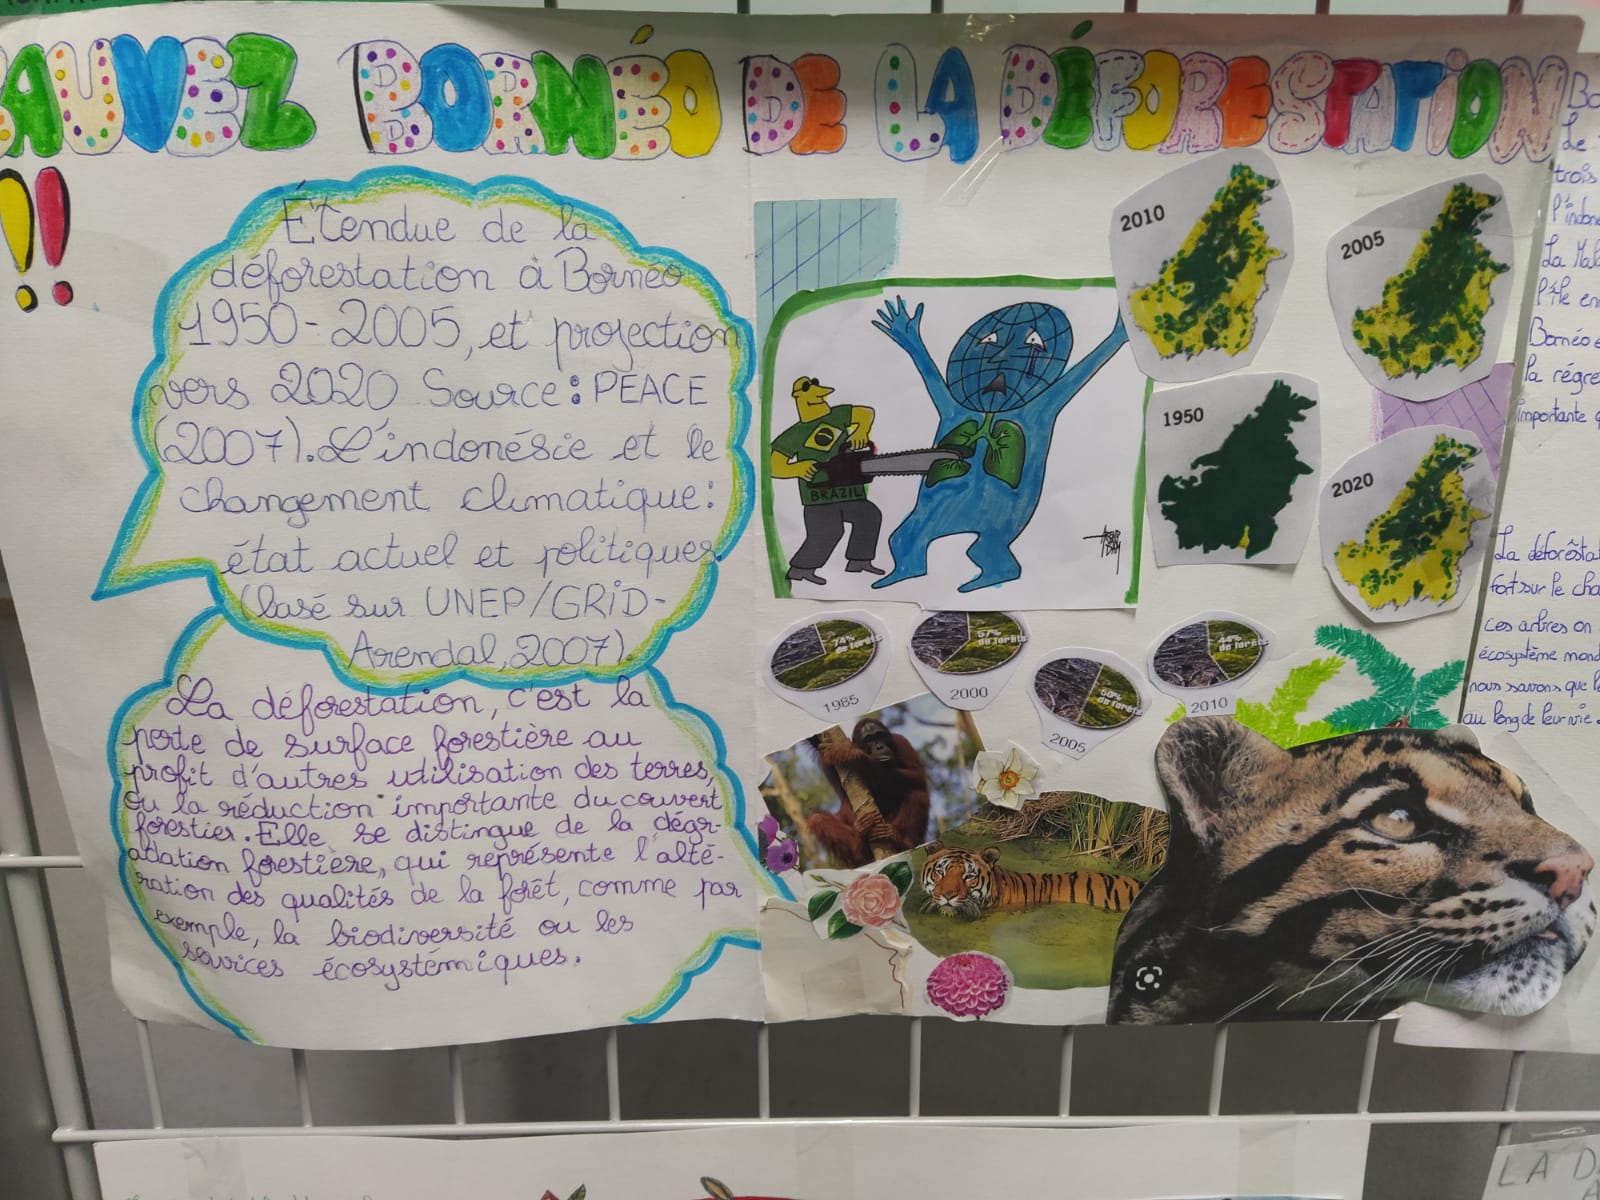 AUVEZ BORNÉO DE LA DÉFORESTATION
!!
Étendue de la
déforestation à Bornéo
1950-2005, et projection
vers 2020 Source: PEACE
(2007). L'indonésie et le
changement climatique:
état actuel et politiques.
(basé sur UNEP/GRiD-
Arendal, 2007).
La déforestation, c'est la
perte de surface forestière au
profit d'autres utilisation des terres,
ou la réduction importante du couvert
forestier. Elle se distingue de la dégr-
adation forestière, qui représente l'alté-
ration des qualités de la forêt, comme par
exemple, la biodiversité ou les
services écosystémiques.
2010
2005
1950
2020
BRAZIL
74%
de forêts
1985
57%
de forêts
2000
50%
de forêts
2005
44%
de forêts
2010
Bo
Le
trois
l'indon
La Mal
l'île en
Bornéo e
la régre
importante q
La déforêsta
fort sur le cha
ces arbres on
écosystème mond
nous savons que l
au long de leur vie.
LA D